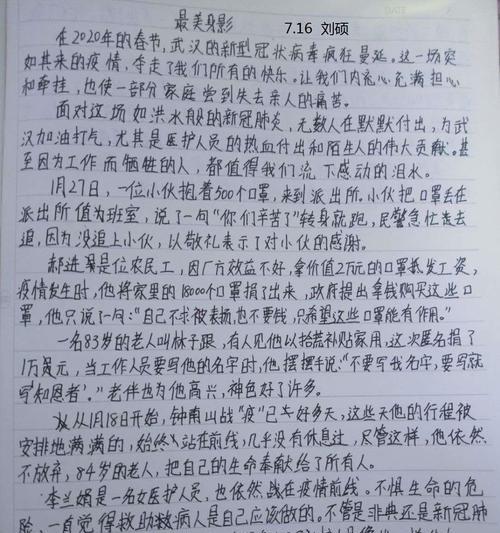 最美身影
7.16 刘硕
在2020年的春节,武汉的新型冠状病毒疯狂蔓延。这一场突
如其来的疫情,夺走了我们所有的快乐。让我们内充心充满担心
和牵挂,也使一部分家庭尝到失去亲人的痛苦。
面对这场如洪水般的新冠肺炎,无数人在默默付出,为武
汉加油打气,尤其是医护人员的热血付出和陌生人的伟大贡献。甚
至因为工作而牺牲的人,都值得我们流下感动的泪水。
1月27日,一位小伙抱着500个口罩,来到派出所。小伙把口罩丢在
派出所值为班室,说了一句“你们辛苦了”转身就跑,民警急忙走去
追,因为没追上小伙,以敬礼表示了对小伙的感谢。
郝进是位农民工,因厂方效益不好,拿价值2万元的口罩抵发工资,
疫情发生时,他将家里的18000个口罩捐了出来,政府提出拿钱购买这些口
罩,他只说了一句:“自己不求被表扬,也不要钱,只希望这些口罩能有作用。”
一名83岁的老人叫林子跟,有人见他以拾荒补贴家用,这次匿名捐了
1万美元,当工作人员要写他的名字时,他摆摆手说:“不要写我名字,要写就
写‘知恩者’。”老伴也为他高兴,神色好了许多。
从1月18日开始,钟南山战“疫”已好多天,这些天他的行程被
安排地满满的,始终站在前线,几乎没有休息过,尽管这样,他依然
不放弃,84岁的老人,把自己的生命奉献给了所有人。
李兰娟是一名女医护人员,也依然战在疫情前线。不惧生命的危
险,一直觉得救助救病人是自己应该做的。不管是非典还是新冠肺